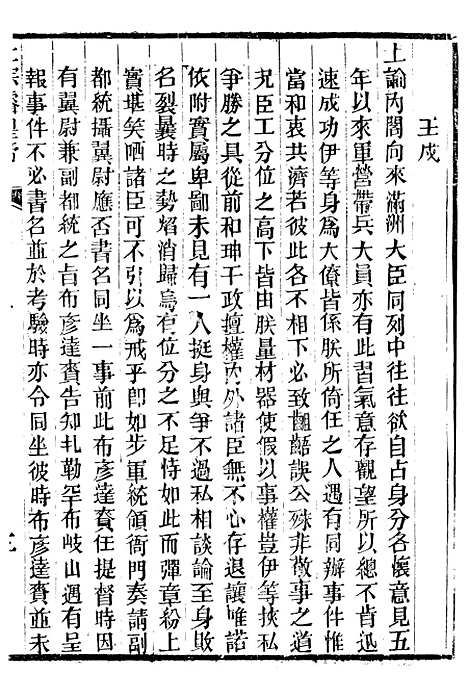 壬戌
上諭內閣向來滿洲大臣同列中往往欲自占身分各懷意見五
年以來軍營帶兵大員亦有此習氣意存觀望所以總不肯迅
速成功伊等身爲大僚皆係朕所倚任之人遇有同辦事件惟
當和衷共濟若彼此各不相下必致齟齬誤公殊非敬事之道
況臣工分位之高下皆由朕量材器使假以事權豈伊等挾私
爭勝之具從前和珅干政擅權內外諸臣無不心存退讓唯諾
依附實屬卑鄙未見有一人挺身與爭不過私相談論至身敗
名裂曩時之勢焰消歸烏有位分之不足恃如此而彈章紛上
實堪笑哂諸臣可不引以爲戒乎卽如步軍統領衙門奏請副
都統攝翼尉應否書名同坐一事前此布彥達賚任提督時因
有翼尉兼副都統之旨布彥達賚告知扎勒罕布岐山遇有呈
報事件不必書名並於考驗時亦令同坐彼時布彥達賚並未